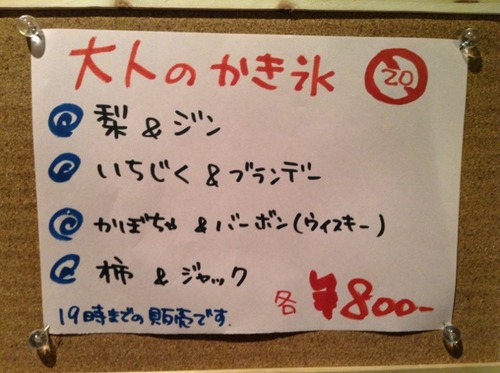 大人のかき氷 20
梨 & ジン
いちじく & ブランデー
かぼちゃ & バーボン(ウィスキー)
柿 & ジャック
各 ¥800-
19時までの販売です.